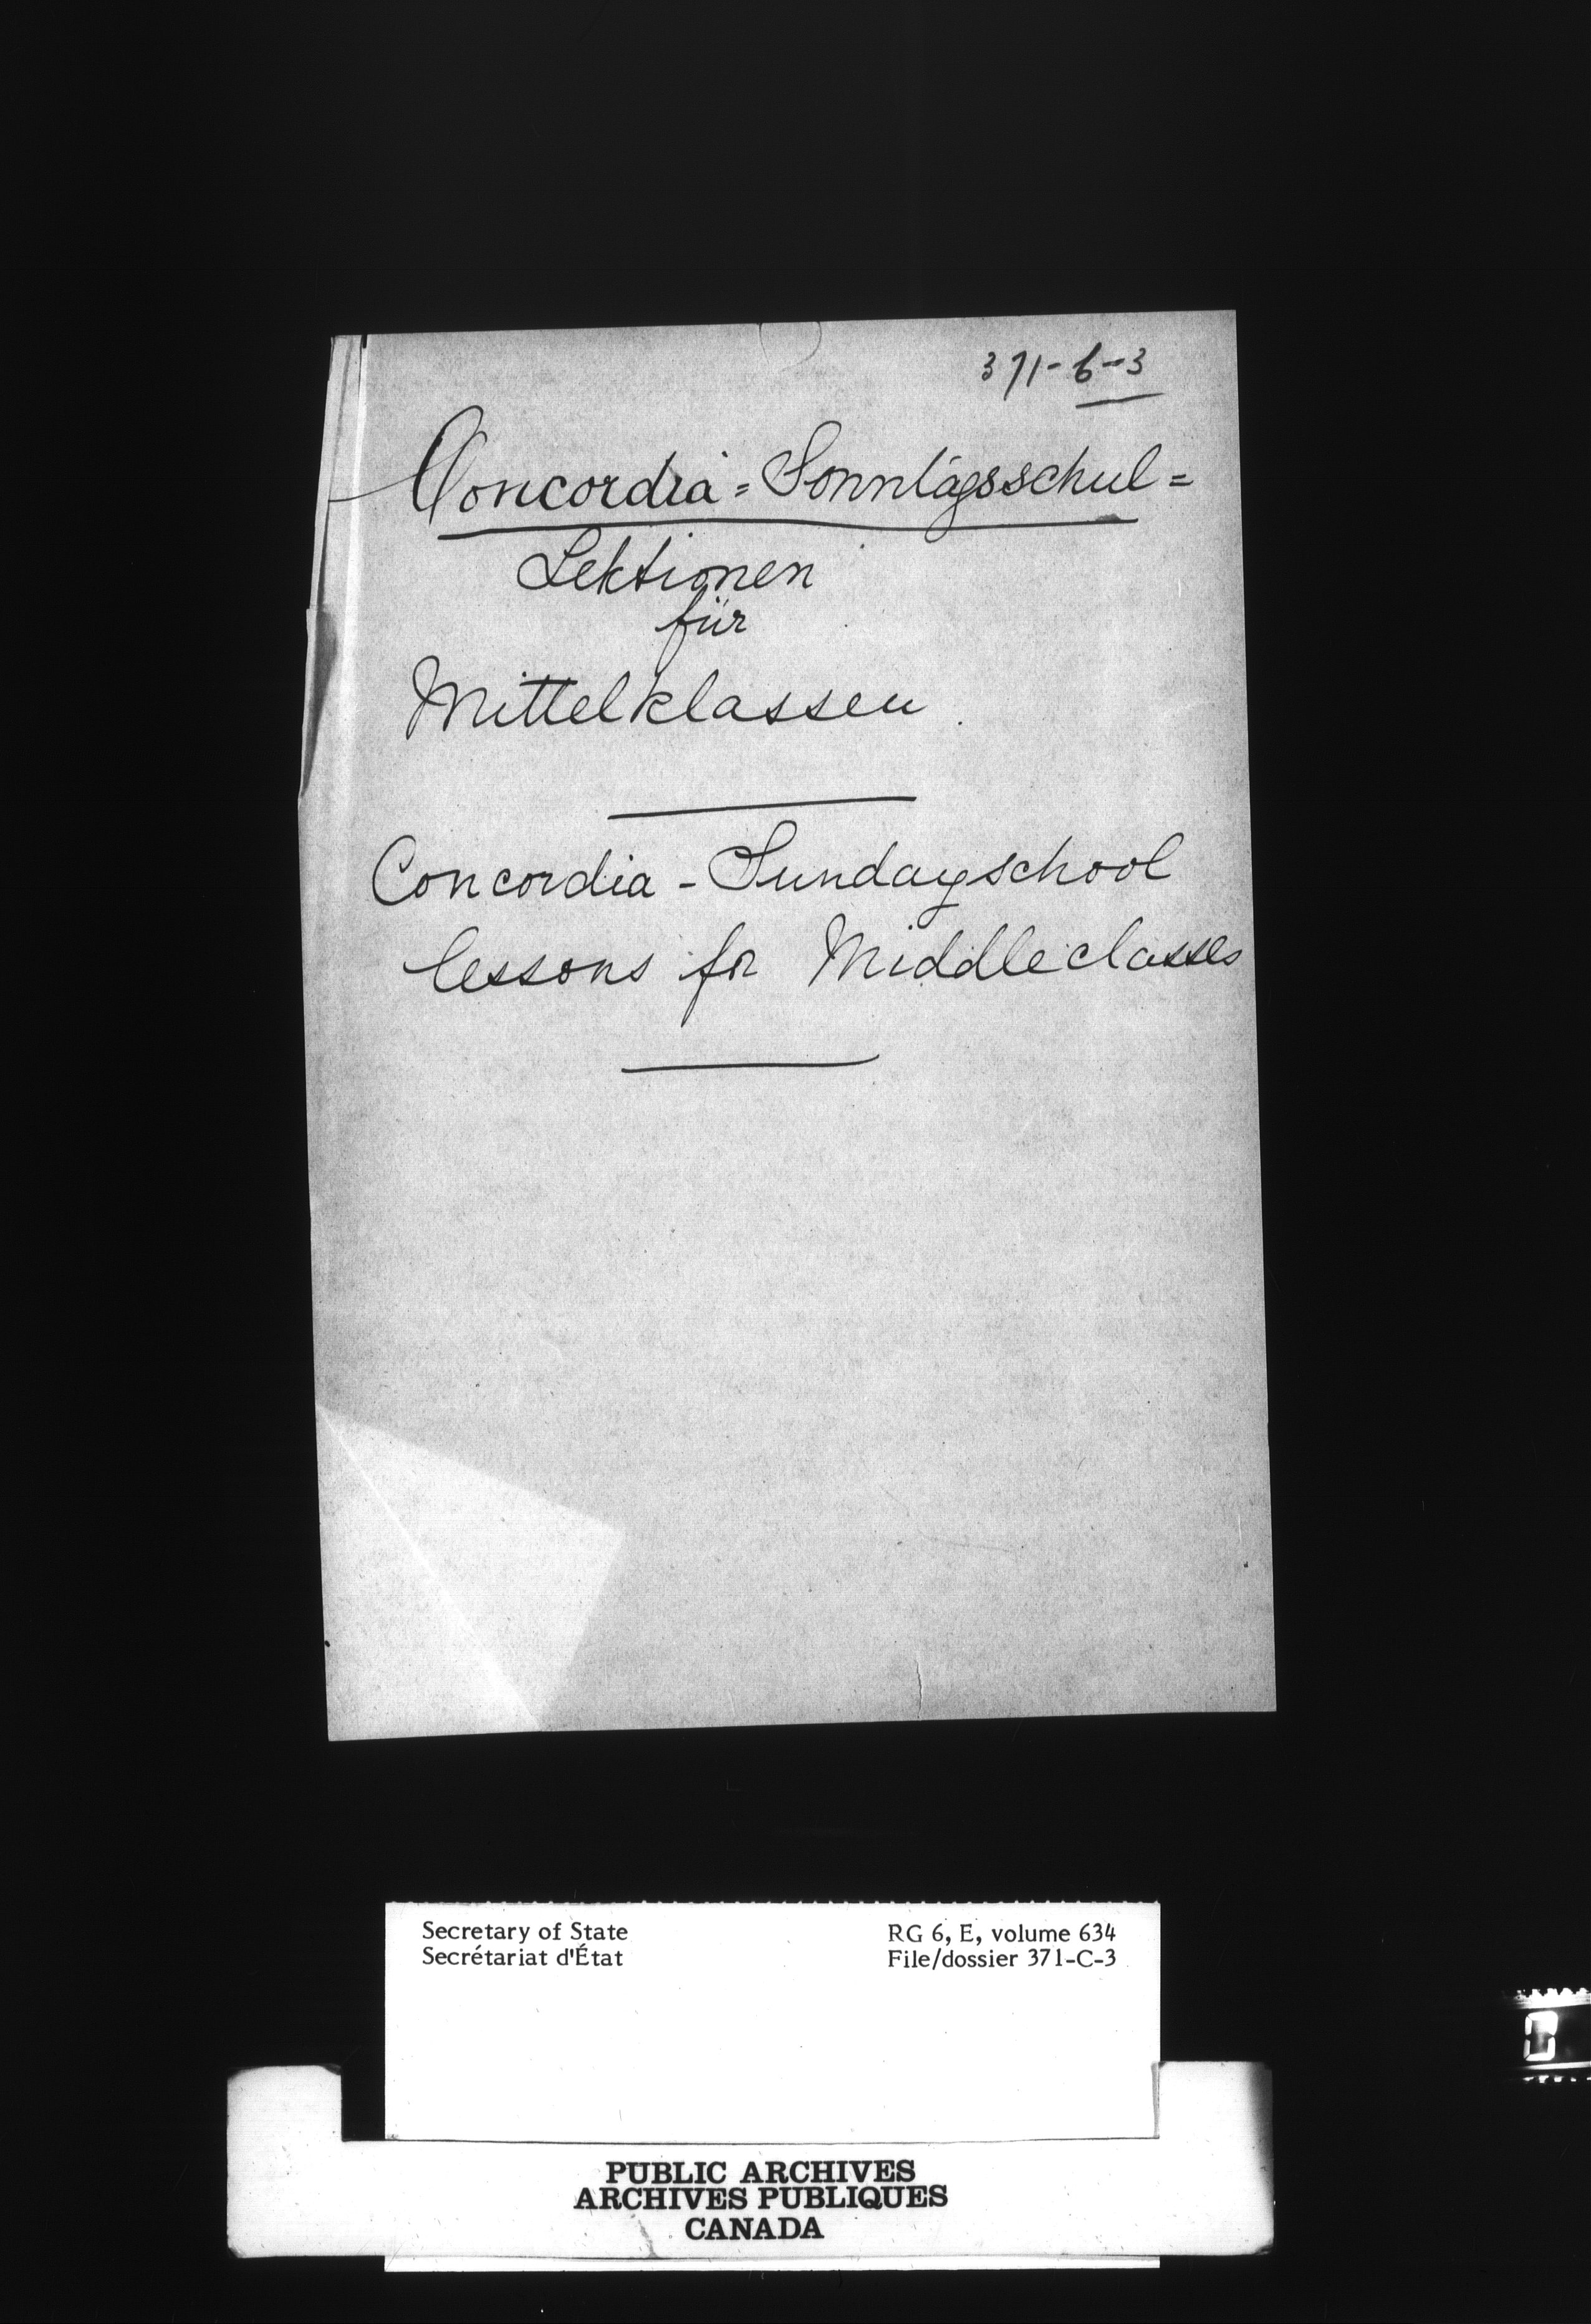 371-6-3
Concordia=Sonntagsschul=
Lektionen
für
Mittelklassen
Concordia-Sundayschool
lessons for Middleclasses
Secretary of State
Secrétariat d'État
RG 6, E, volume 634
File/dossier 371-C-3
PUBLIC ARCHIVES
ARCHIVES PUBLIQUES
CANADA